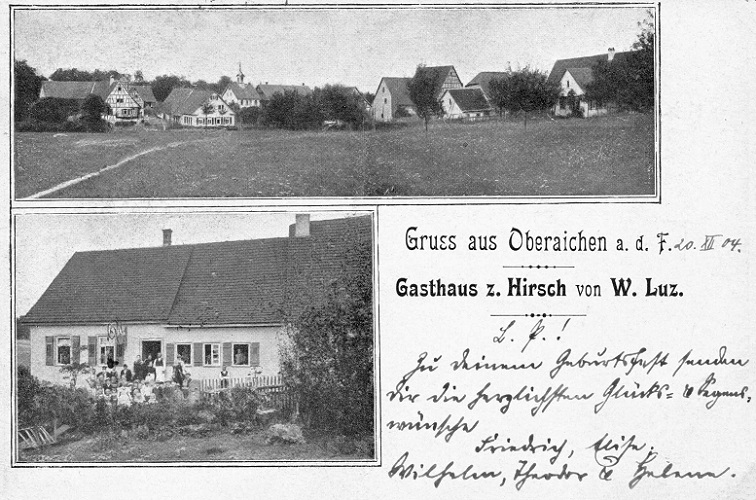 Gruss aus Oberaichen a. d. F. 20. XII 04.
Gasthaus z. Hirsch von W. Luz.
L. P. !
Zu deinem Geburtsfest senden
dir die herzlichsten Glücks- & Segens-
wünsche
Friedrich, Elise,
Wilhelm, Theodor & Helene.